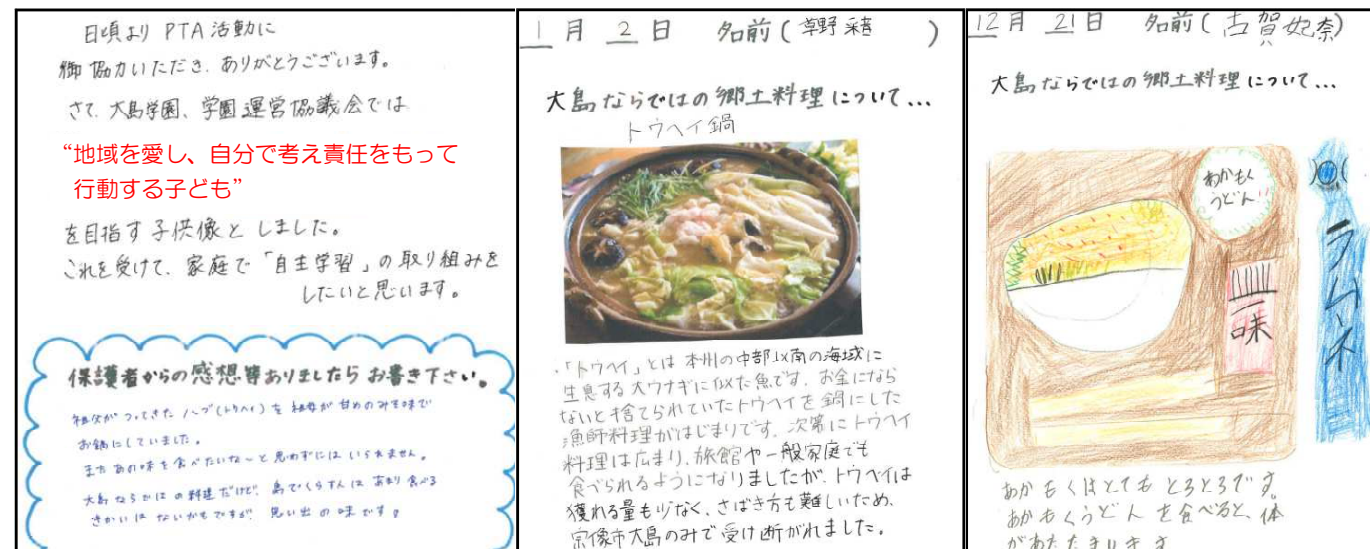 日頃より PTA活動に
御協力いただき、ありがとうございます。
さて、大島学園、学園運営協議会では
“地域を愛し、自分で考え責任をもって
行動する子ども”
を目指す子供像としました。
これを受けて、家庭で「自主学習」の取り組みを
したいと思います。
保護者からの感想等ありましたらお書き下さい。
祖父がつってきたハブ(トウヘイ)を祖母が甘めのみそ味で
お鍋にしていました。
またあの味を食べたいな〜と思わずにはいられません。
大島ならではの料理だけど、島でくらす人はあまり食べる
きかいはないかもですが、思い出の味です。
1月 2日 名前(草野 )
大島ならではの郷土料理について...
トウヘイ鍋
・「トウヘイ」とは本州の中部以南の海域に
生息する大ウナギに似た魚です。お金になら
ないと捨てられていたトウヘイを鍋にした
漁師料理がはじまりです。次第にトウヘイ
料理は広まり、旅館や一般家庭でも
食べられるようになりましたが、トウヘイは
獲れる量も少なく、さばき方も難しいため、
宗像市大島のみで受け断がれました。
12月 21日 名前(古賀妃奈)
大島ならではの郷土料理について...
あかもく
うどん
一味
ラムネ
あかもくはとてもとろとろです。
あかもくうどんを食べると、体
があたたまります